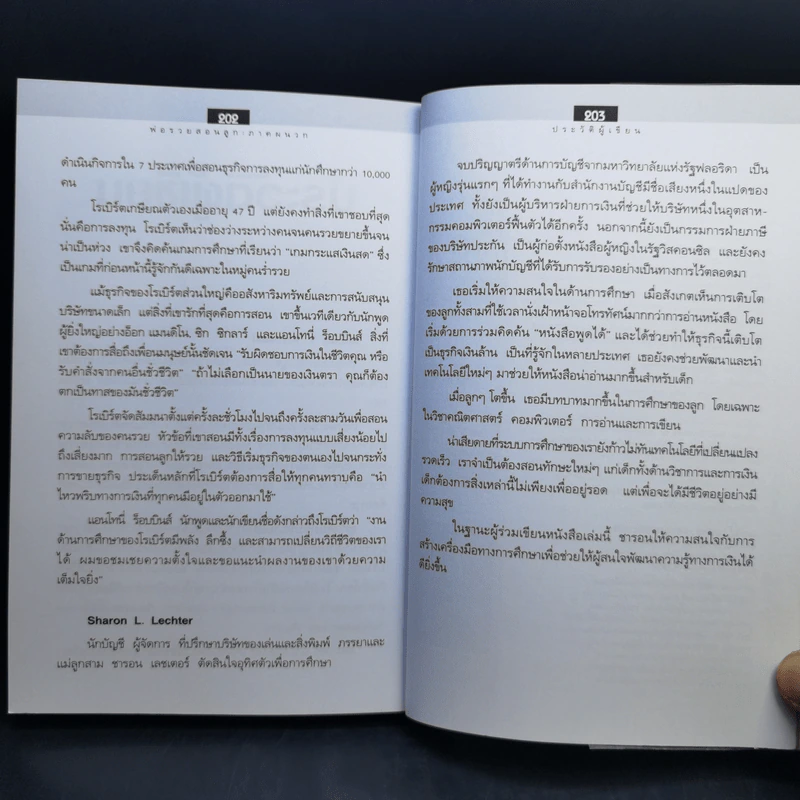 202
พ่อรวยสอนลูก-ภาคผนวก
ดำเนินกิจการใน 7 ประเทศเพื่อสอนธุรกิจการลงทุนแก่นักศึกษากว่า 10,000
คน
โรเบิร์ตเกษียณตัวเองเมื่ออายุ 47 ปี แต่ยังคงทำสิ่งที่เขาชอบที่สุด
นั่นคือการลงทุน โรเบิร์ตเห็นว่าช่องว่างระหว่างคนจนคนรวยขยายขึ้นจน
น่าเป็นห่วง เขาจึงคิดค้นเกมการศึกษาที่เรียนว่า “เกมกระแสเงินสด” ซึ่ง
เป็นเกมที่ก่อนหน้านี้รู้จักกันดีเฉพาะในหมู่คนร่ำรวย
แม้ธุรกิจของโรเบิร์ตส่วนใหญ่คืออสังหาริมทรัพย์และการสนับสนุน
บริษัทขนาดเล็ก แต่สิ่งที่เขารักที่สุดคือการสอน เขาขึ้นเวทีเดียวกับนักพูด
ผู้ยิ่งใหญ่อย่างอ็อก แมนดิโน, ซิก ซิกลาร์ และแอนโทนี่ ร็อบบินส์ สิ่งที่
เขาต้องการสื่อถึงเพื่อนมนุษย์นั้นชัดเจน “รับผิดชอบการเงินในชีวิตคุณ หรือ
รับคำสั่งจากคนอื่นชั่วชีวิต” “ถ้าไม่เลือกเป็นนายของเงินตรา คุณก็ต้อง
ตกเป็นทาสของมันชั่วชีวิต”
โรเบิร์ตจัดสัมมนาตั้งแต่ครั้งละชั่วโมงไปจนถึงครั้งละสามวันเพื่อสอน
ความลับของคนรวย หัวข้อที่เขาสอนมีทั้งเรื่องการลงทุนแบบเสี่ยงน้อยไป
ถึงเสี่ยงมาก การสอนลูกให้รวย และวิธีเริ่มธุรกิจของตนเองไปจนกระทั่ง
การขายธุรกิจ ประเด็นหลักที่โรเบิร์ตต้องการสื่อให้ทุกคนทราบคือ “นำ
ไหวพริบทางการเงินที่ทุกคนมีอยู่ในตัวออกมาใช้”
แอนโทนี่ ร็อบบินส์ นักพูดและนักเขียนชื่อดังกล่าวถึงโรเบิร์ตว่า “งาน
ด้านการศึกษาของโรเบิร์ตมีพลัง ลึกซึ้ง และสามารถเปลี่ยนวิถีชีวิตของเรา
ได้ ผมขอชมเชยความตั้งใจและขอแนะนำผลงานของเขาด้วยความ
เต็มใจยิ่ง”
Sharon L. Lechter
นักบัญชี ผู้จัดการ ที่ปรึกษาบริษัทของเล่นและสิ่งพิมพ์ ภรรยาและ
แม่ลูกสาม ชารอน เลชเตอร์ ตัดสินใจอุทิศตัวเพื่อการศึกษา
203
ประวัติผู้เขียน
จบปริญญาตรีด้านการบัญชีจากมหาวิทยาลัยแห่งรัฐฟลอริดา เป็น
ผู้หญิงรุ่นแรกๆ ที่ได้ทำงานกับสำนักงานบัญชีมีชื่อเสียงหนึ่งในแปดของ
ประเทศ ทั้งยังเป็นผู้บริหารฝ่ายการเงินที่ช่วยให้บริษัทหนึ่งในอุตสาห-
กรรมคอมพิวเตอร์ฟื้นตัวได้อีกครั้ง นอกจากนี้ยังเป็นกรรมการฝ่ายภาษี
ของบริษัทประกัน เป็นผู้ก่อตั้งหนังสือผู้หญิงในรัฐวิสคอนซิล และยังคง
รักษาสถานภาพนักบัญชีที่ได้รับการรับรองอย่างเป็นทางการไว้ตลอดมา
เธอเริ่มให้ความสนใจในด้านการศึกษา เมื่อสังเกตเห็นการเติบโต
ของลูกทั้งสามที่ใช้เวลานั่งเฝ้าหน้าจอโทรทัศน์มากกว่าการอ่านหนังสือ โดย
เริ่มด้วยการร่วมคิดค้น “หนังสือพูดได้” และได้ช่วยทำให้ธุรกิจนี้เติบโต
เป็นธุรกิจเงินล้าน เป็นที่รู้จักในหลายประเทศ เธอยังคงช่วยพัฒนาและนำ
เทคโนโลยีใหม่ๆ มาช่วยให้หนังสือน่าอ่านมากขึ้นสำหรับเด็ก
เมื่อลูกๆ โตขึ้น เธอมีบทบาทมากขึ้นในการศึกษาของลูก โดยเฉพาะ
ในวิชาคณิตศาสตร์ คอมพิวเตอร์ การอ่านและการเขียน
น่าเสียดายที่ระบบการศึกษาของเรายังก้าวไม่ทันเทคโนโลยีที่เปลี่ยนแปลง
รวดเร็ว เราจำเป็นต้องสอนทักษะใหม่ๆ แก่เด็กทั้งด้านวิชาการและการเงิน
เด็กต้องการสิ่งเหล่านี้ไม่เพียงเพื่ออยู่รอด แต่เพื่อจะได้มีชีวิตอยู่อย่างมี
ความสุข
ในฐานะผู้ร่วมเขียนหนังสือเล่มนี้ ชารอนให้ความสนใจกับการ
สร้างเครื่องมือทางการศึกษาเพื่อช่วยให้ผู้สนใจพัฒนาความรู้ทางการเงินได้
ดียิ่งขึ้น